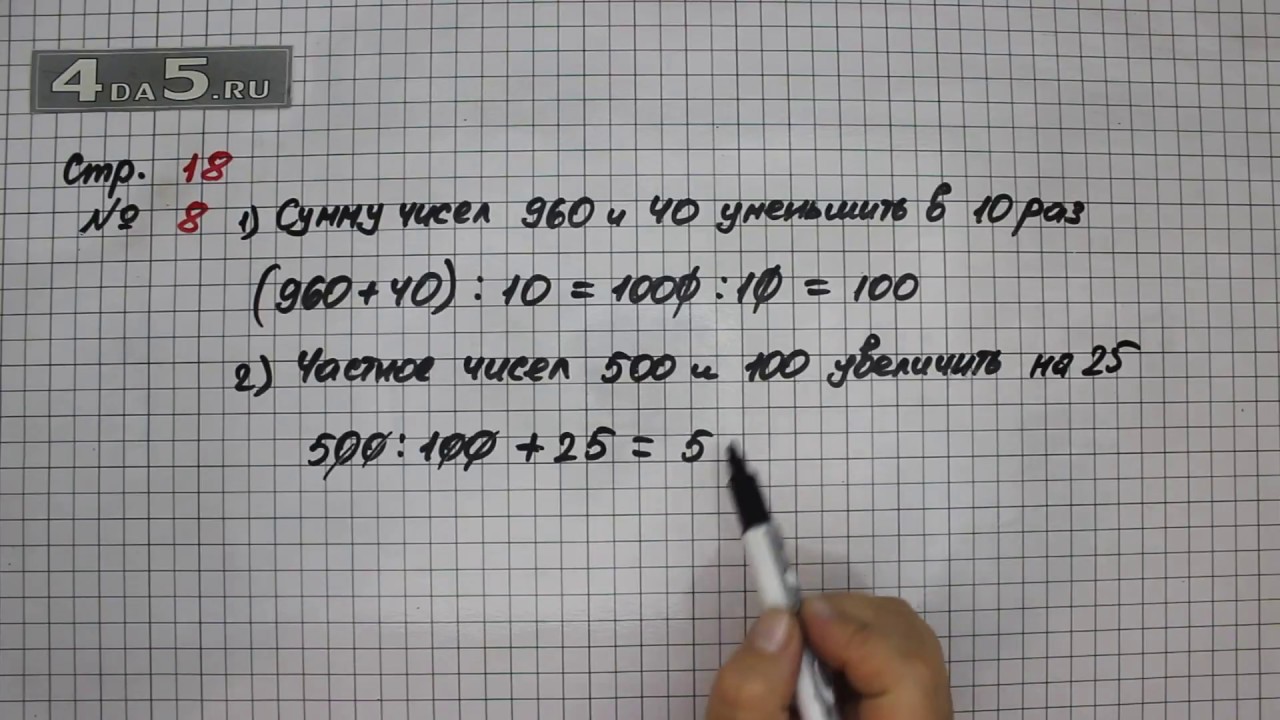 4DA5.RU
Стр. 18
№ 8 1) Сумму чисел 960 и 40 уменьшить в 10 раз
(960 + 40) : 10 = 1000 : 10 = 100
2) Частное чисел 500 и 100 увеличить на 25
500 : 100 + 25 = 5